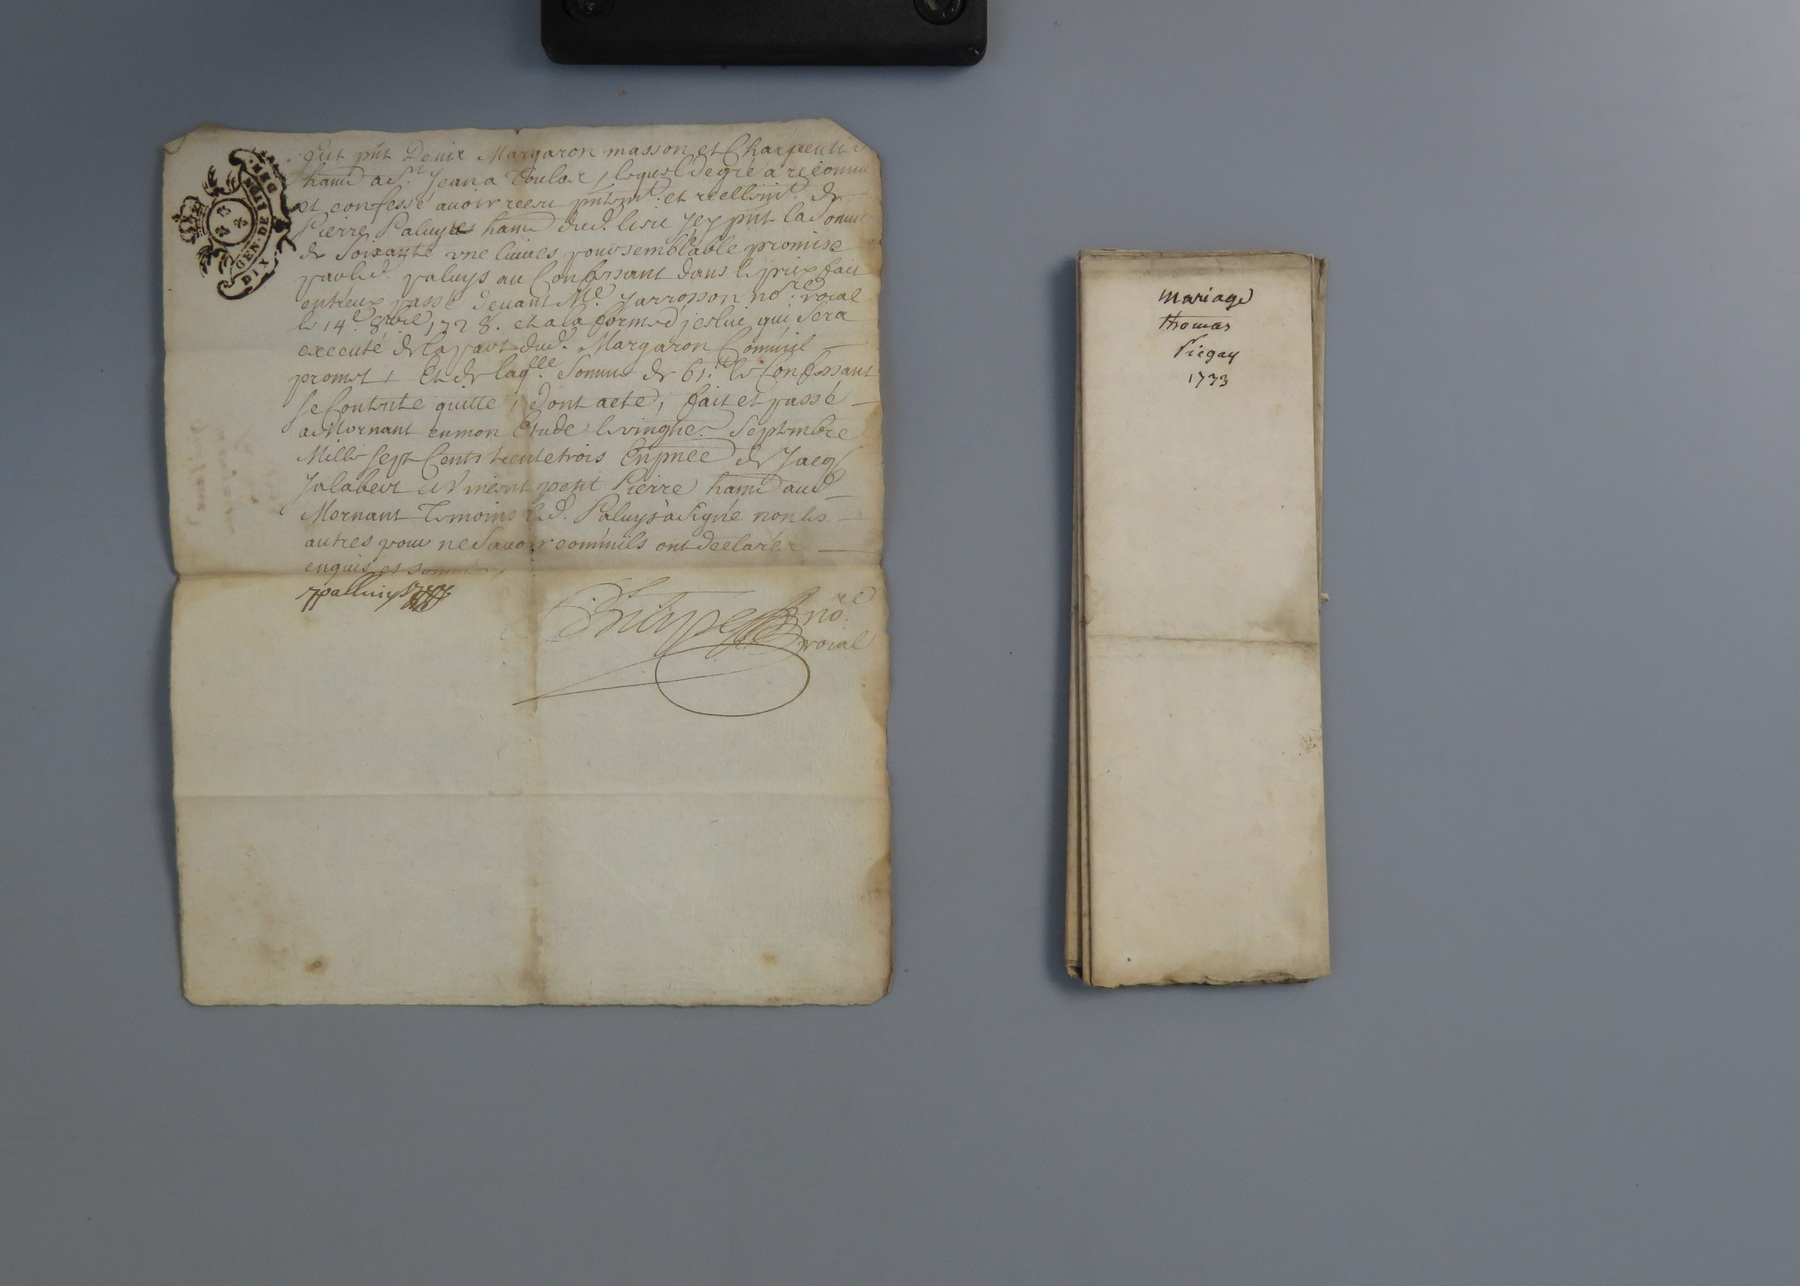 GEN. DE LYON
DIX DEN.
fut pnt Denis Margaron masson et Charpentier
hant a St Jean a Toulas, lequel de gré a reconnu
et confessé avoir receu pntemt et reellemt de
Pierre Paluys hant dud. lieu icy pnt la somme
de soixante une livres pour semblable promise
par led. paluys au Confessant dans le prix fait
entreux passé devant Me. Jarrosson nore roial
le 14e 8bre 1728. et a la forme d'jceluy qui sera
executé de la part dud. Margaron Comm'il
promet, Et de laqlle somme de 61lt le Confessant
se Contente quitte, dont acte, fait et passé
a Mornant en mon Etude le vingt Septembre
Mille sept Cents trente trois En pnce de Jacq
Jalabert et Vincent petit Pierre hant aud.
Mornant Temoins led. Paluys a signé non les
autres pour ne scavoir comm'ils ont declaré
enquis et sommés
ppalluys
nore
roial
mariage
thomas
1733